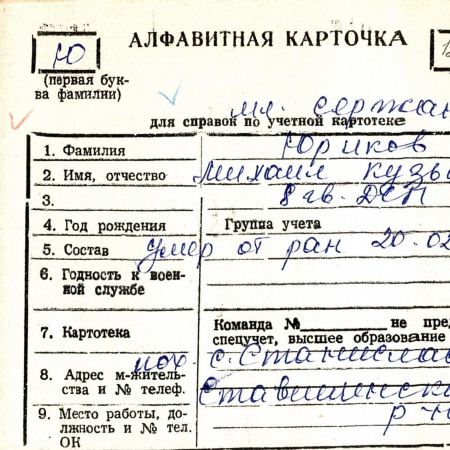 Ю
АЛФАВИТНАЯ КАРТОЧКА
(первая бук-
ва фамилии)
мл. сержан
для справок по учетной картотеке
1. Фамилия Юриков
2. Имя, отчество Михаил Кузь
3. 8 гв. ДСП
4. Год рождения Группа учета
5. Состав умер от ран 20.02
6. Годность к воен-
ной службе
7. Картотека Команда № не пред
спецучет, высшее образование
8. Адрес м-житель- пох с. Станислав
ства и № телеф. Ставищенски
9. Место работы, до- р-н
лжность и № тел.
ОК